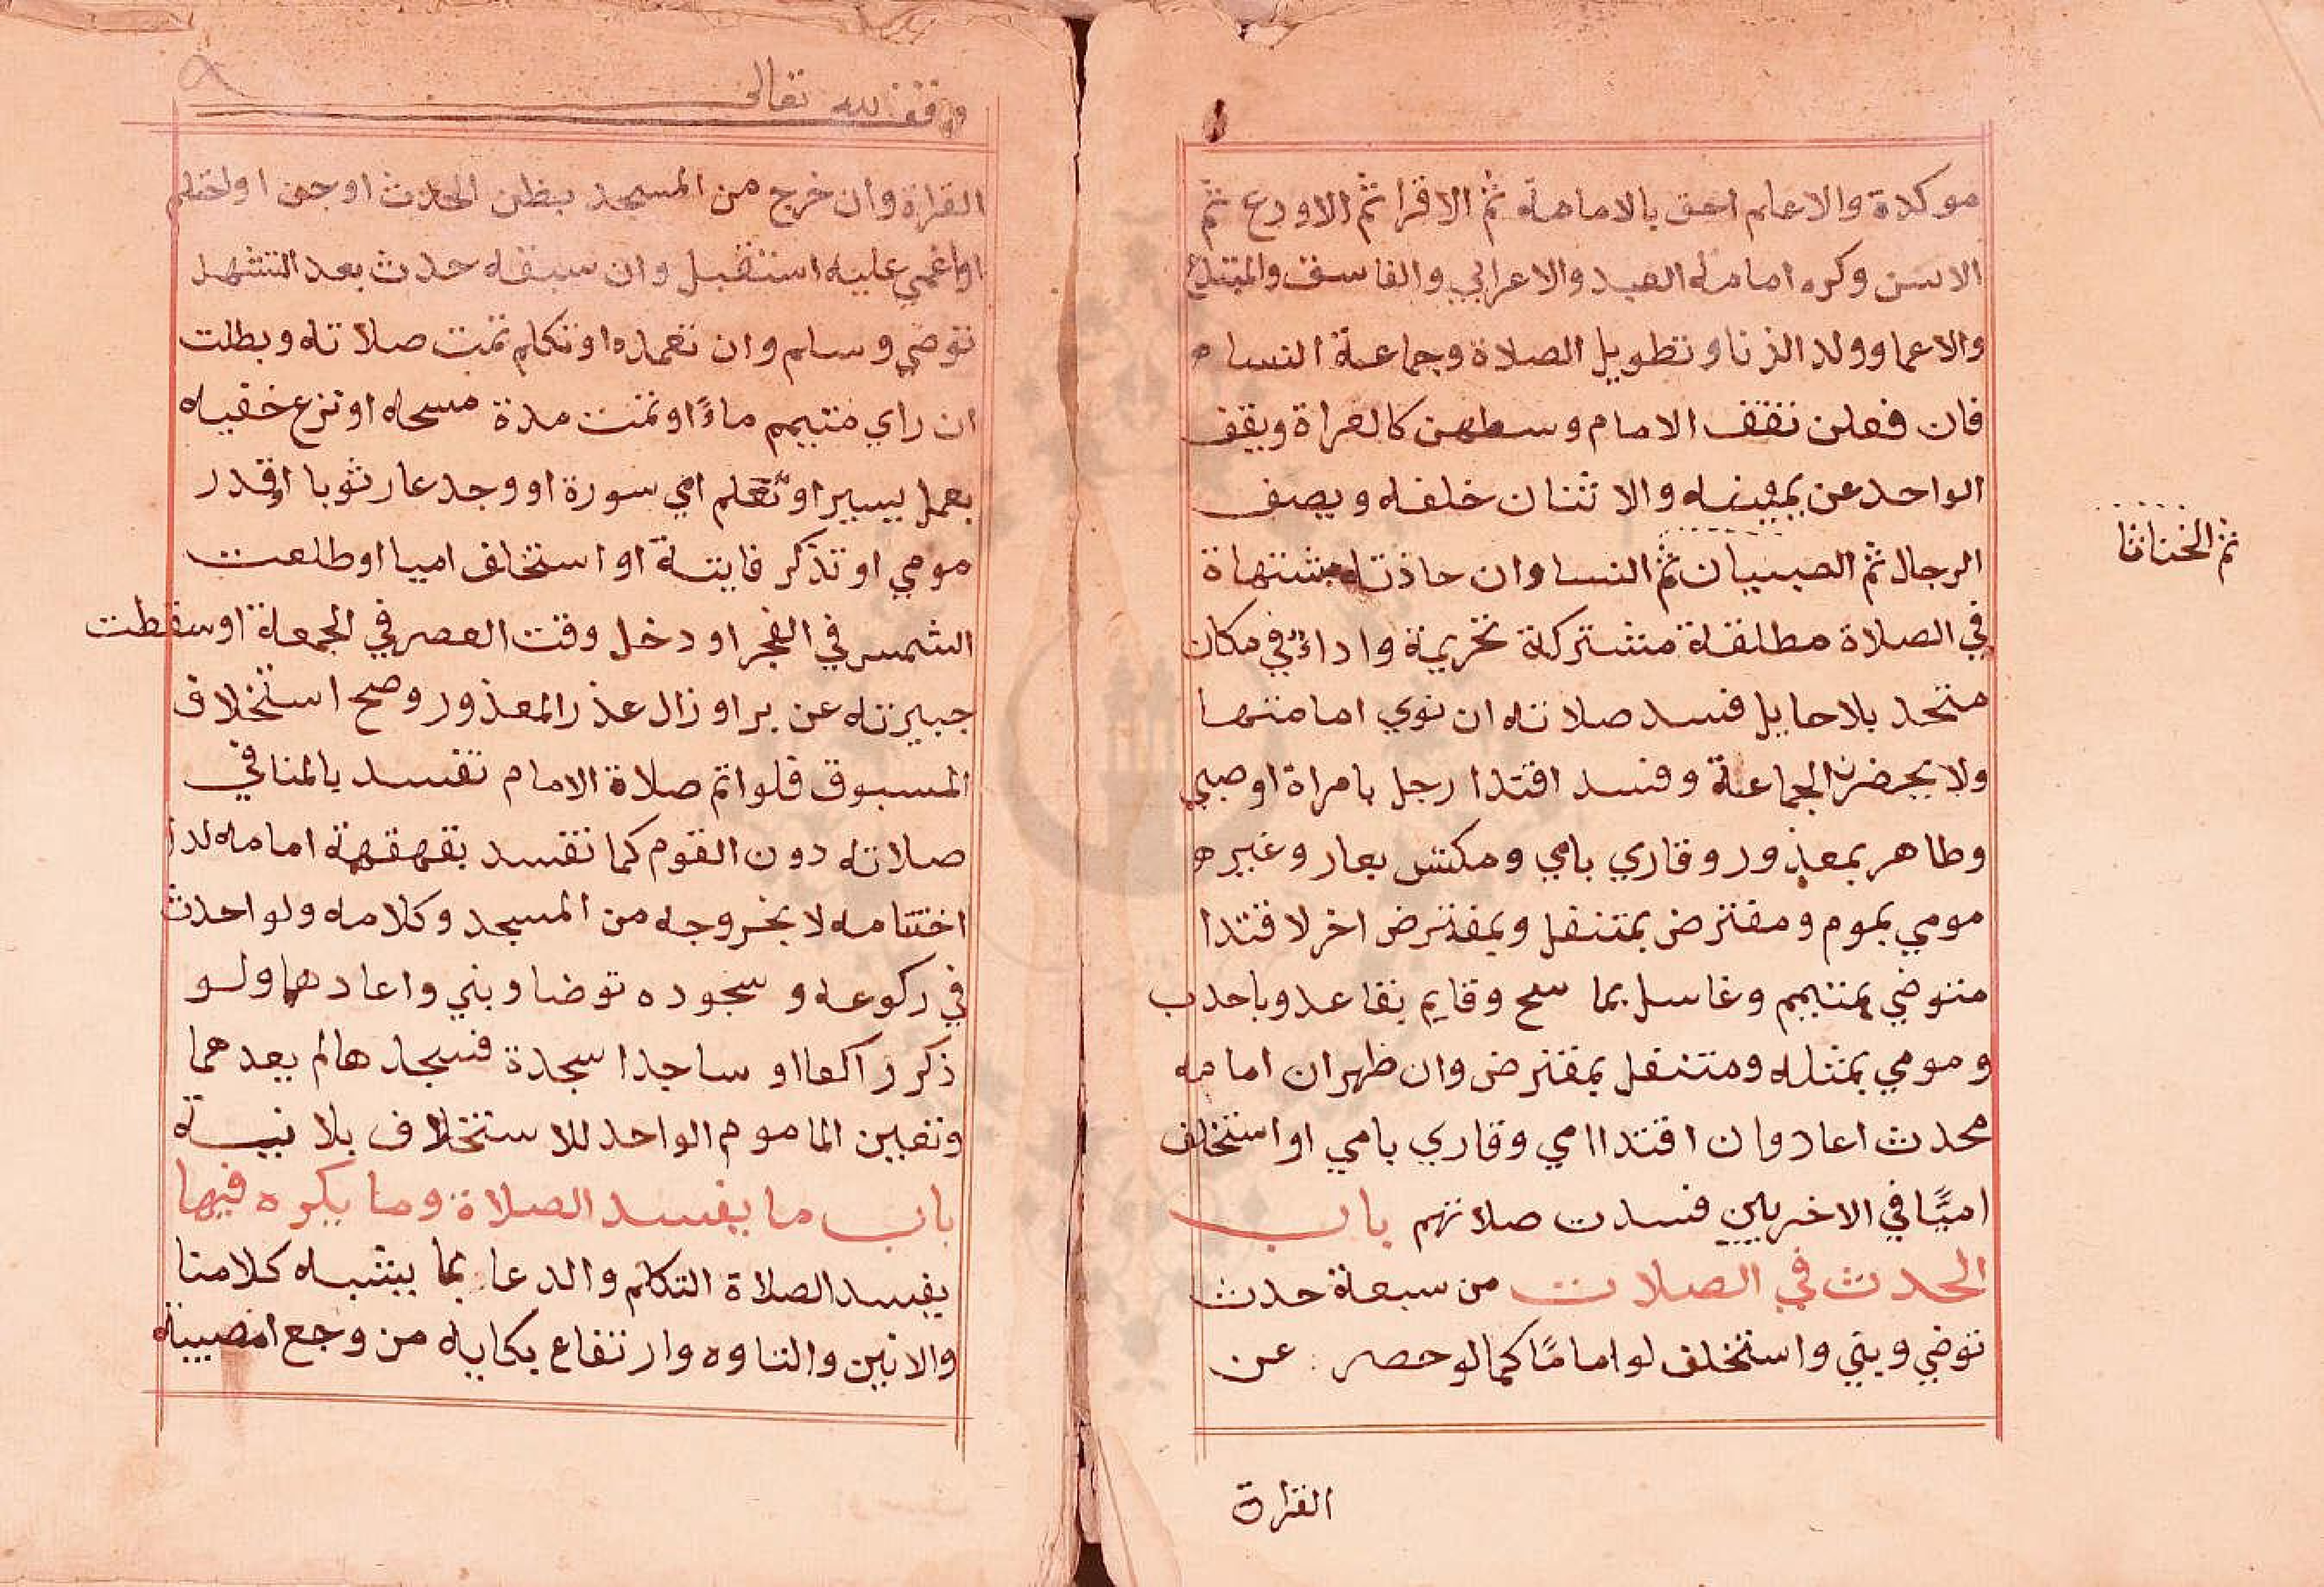 موكدة والاعلم احق بالامامة ثم الاقرا ثم الاورع ثم
الاسن وكره امامة العبد والاعرابي والفاسق والمبتدع
والاعما وولد الزنا وتطويل الصلاة وجماعة النسا
فان فعلن تقف الامام وسطهن كالعراة ويقف
الواحد عن يمينه والاثنان خلفه ويصف
الرجال ثم الصبيان ثم النسا وان حاذته مشتهاة
ثم الخناثا
في الصلاة مطلقة مشتركة تحريمة واداءً في مكان
متحد بلا حايل فسد صلاته ان نوي امامتها
ولا يحضرن الجماعة وفسد اقتدا رجل بامراة او صبي
وطاهر بمعذور وقاري بامي ومكتس بعار وغير
مومي بموم ومفترض بمتنفل وبمفترض اخر لا قتدا
متوضي بمتيمم وغاسل بماسح وقايم بقاعد وباحدب
ومومي بمثله ومتنفل بمفترض وان ظهر ان امامه
محدث اعاد وان اقتدا امي وقاري بامي او استخلف
اميًّا في الاخريين فسدت صلاتهم باب
الحدث في الصلات من سبعة حدث
توضي وبني واستخلف لو امامًا كما لو حصر عن
القراة
وقف لله تعالى
القراة وان خرج من المسجد بظن الحدث او جن او احتلم
او اغمي عليه استقبل وان سبقه حدث بعد التشهد
توضي وسلم وان تعمده او تكلم تمت صلاته وبطلت
ان راي متيمم ماءً او تمت مدة مسحه او نزع خفيه
بعمل يسير او تعلم امي سورة او وجد عار ثوبا او قدر
مومي او تذكر فايتة او استخلف اميا او طلعت
الشمس في الفجر او دخل وقت العصر في الجمعة او سقطت
جبيرته عن برا او زال عذر المعذور وصح استخلاف
المسبوق فلو اتم صلاة الامام تفسد بالمنافي
صلاته دون القوم كما تفسد بقهقهة امامه لدا
اختتامه لا بخروجه من المسجد وكلامه ولو احدث
في ركوعه و سجوده توضا وبني واعادهما ولو
ذكر راكعا او ساجدا سجدة فسجدها لم يعدهما
وتعين الماموم الواحد للاستخلاف بلا نية
باب ما يفسد الصلاة وما يكره فيها
يفسد الصلاة التكلم والدعا بما يشبه كلامنا
والانين والتاوه وارتفاع بكايه من وجع امصيبة